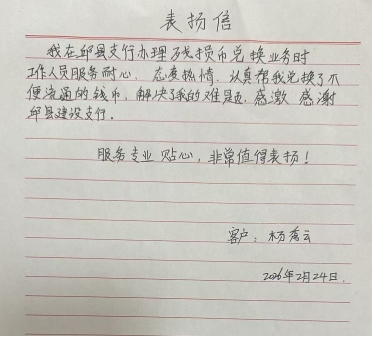 表扬信
我在邱县支行办理残损币兑换业务时
工作人员服务耐心，态度热情，认真帮我兑换了不
便流通的钱币，解决了我的难题，感激 感谢
邱县建设支行。
服务专业 贴心，非常值得表扬！
客户：杨秀云
2026年2月24日.